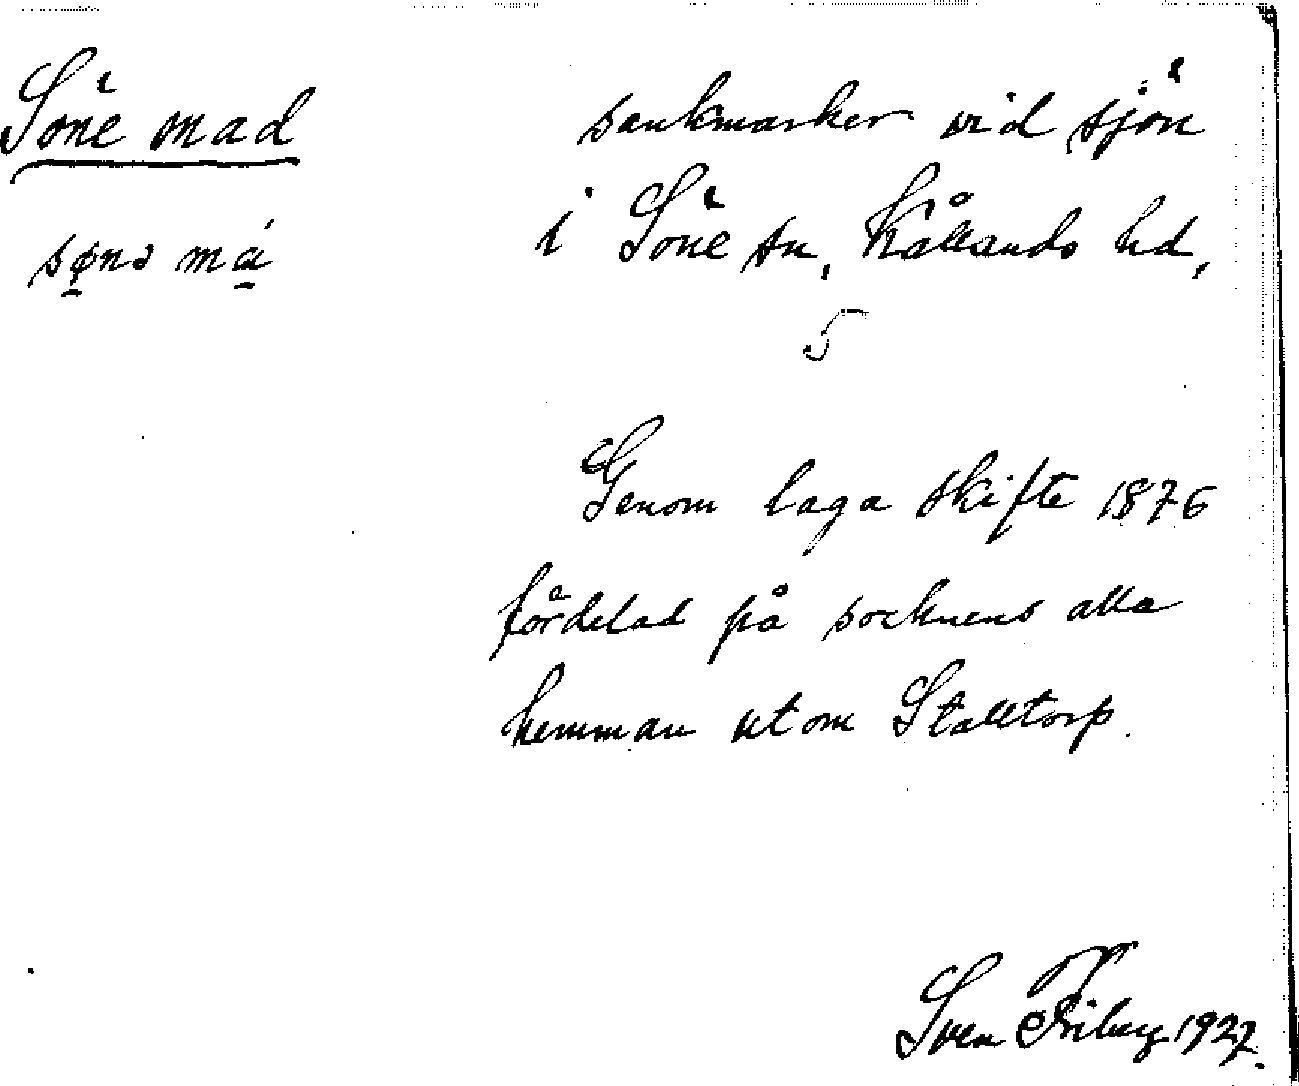 Söne mad
sankmarker vid sjön
i Söne sn, Kållands hd,
sønə má
5
Genom laga skifte 1876
fördelad på socknens alla
hemman utom Stalltorp.
Sven Friberg 1927.